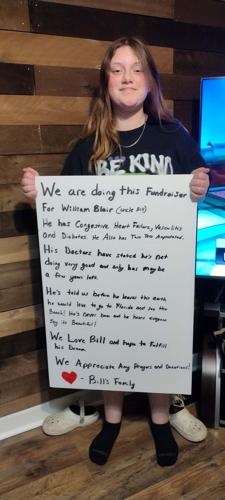 BE KIND
We are doing this Fundraiser
For William Blair (Uncle Bill)
He has Congestive Heart Failure, Vasculitis
and Diabetes. He Also has Two Toes Amputated.
His Doctors have stated he's not
doing very good and only has maybe
a few years left.
He's told us before he leaves this earth
he would love to go to Florida and see the
Beach! He's never been and he hears everyone
Say its Beautiful!
We Love Bill and hope to Fulfill
his Dream.
We Appreciate Any Prayers and Donations!
- Bill's Family